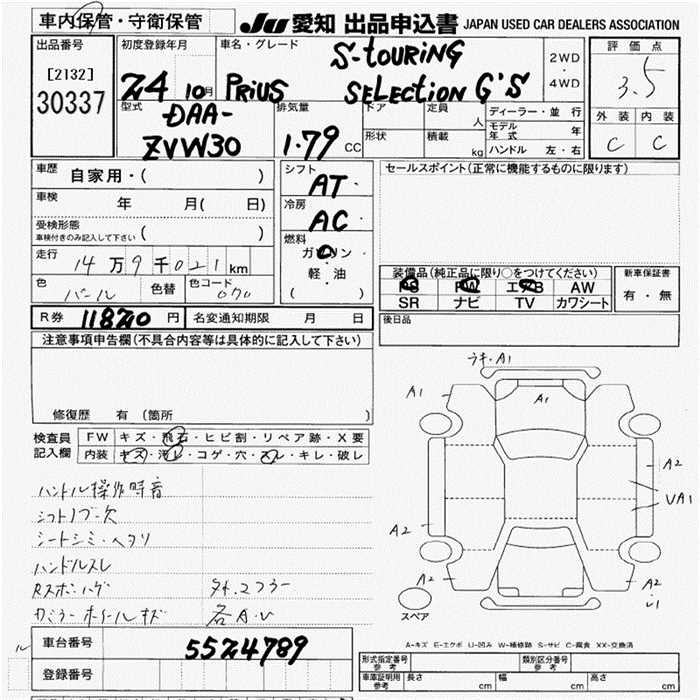 車内保管・守衛保管
JU 愛知 出品申込書 JAPAN USED CAR DEALERS ASSOCIATION
出品番号
[2132]
30337
初度登録年月
24 10月
車名・グレード
S-touring
PRiUS SELECtion G'S
2WD
・
4WD
評価点
3.5
外装 内装
C C
型式
DAA-
ZVW30
排気量
1.79 CC
ドア
定員 人
形状
積載 kg
ディーラー・並行
モデル年式 年
ハンドル 左・右
車歴
自家用・( )
車検
年 月( 日)
受検形態
車検付きのみ記入して下さい ( )
走行
14万9千021km
色
パール
色替
色コード
070
シフト
AT
冷房
AC
燃料
ガソリン
・
軽・油
( )
セールスポイント(正常に機能するものに限ります)
装備品(純正品に限り○をつけてください)
PS PW エアB AW
SR ナビ TV カワシート
新車保証書
有・無
R券 11820円
名変通知期限 月 日
後日品
注意事項申告欄(不具合内容等は具体的に記入して下さい)
修復歴 有(箇所 )
検査員
記入欄
FW キズ・飛石・ヒビ割・リペア跡・X要
内装 キズ・汚レ・コゲ・穴・スレ・キレ・破レ
ハンドル操作時音
シフトノブ欠
シートシミ・ヘタリ
ハンドルスレ
外.コフラー
各A.U
ウキ・A1
A1
A1
A2
UA1
A2
A2
A2
スペア
A-キズ E-エクボ U-凹み W-補修跡 S-サビ C-腐食 XX-交換済
車台番号
5524789
登録番号
形式指定番号
参考
類別区分番号
参考
車庫証明用
参考
長さ cm
幅 cm
高さ cm